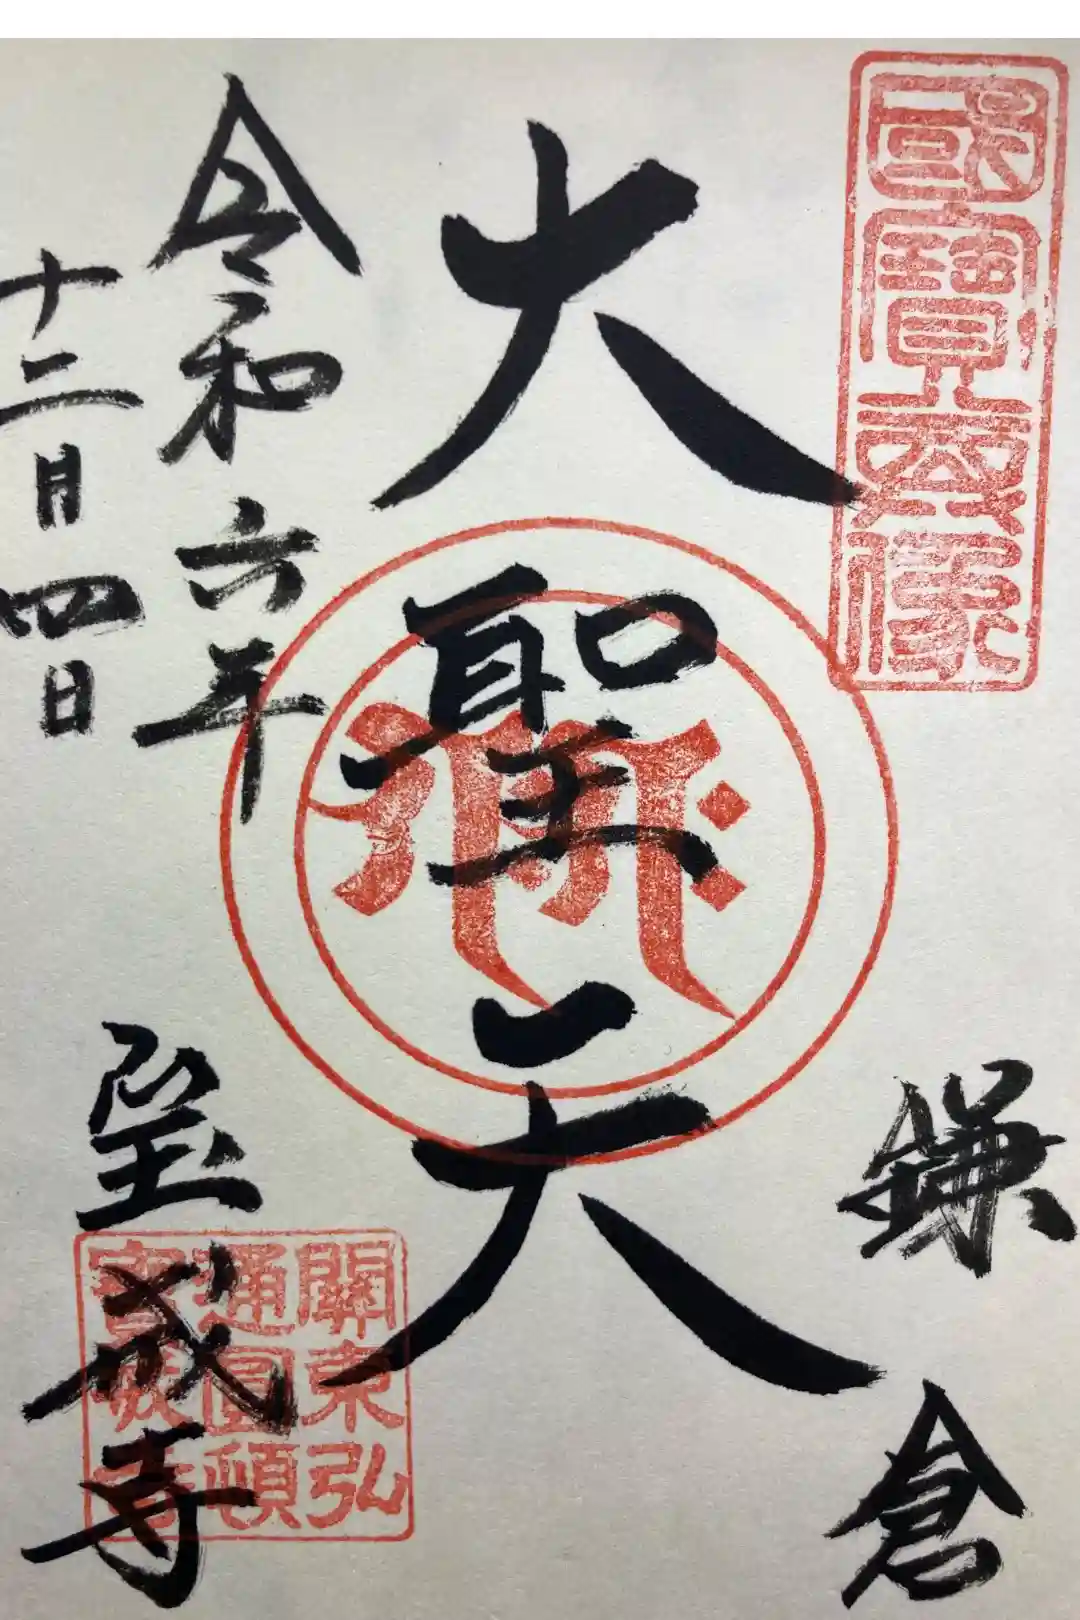 國寶
像
鎌倉
大聖天
令和六年
十二月四日
宝戒寺
關東弘
通圓頓
寶戒寺